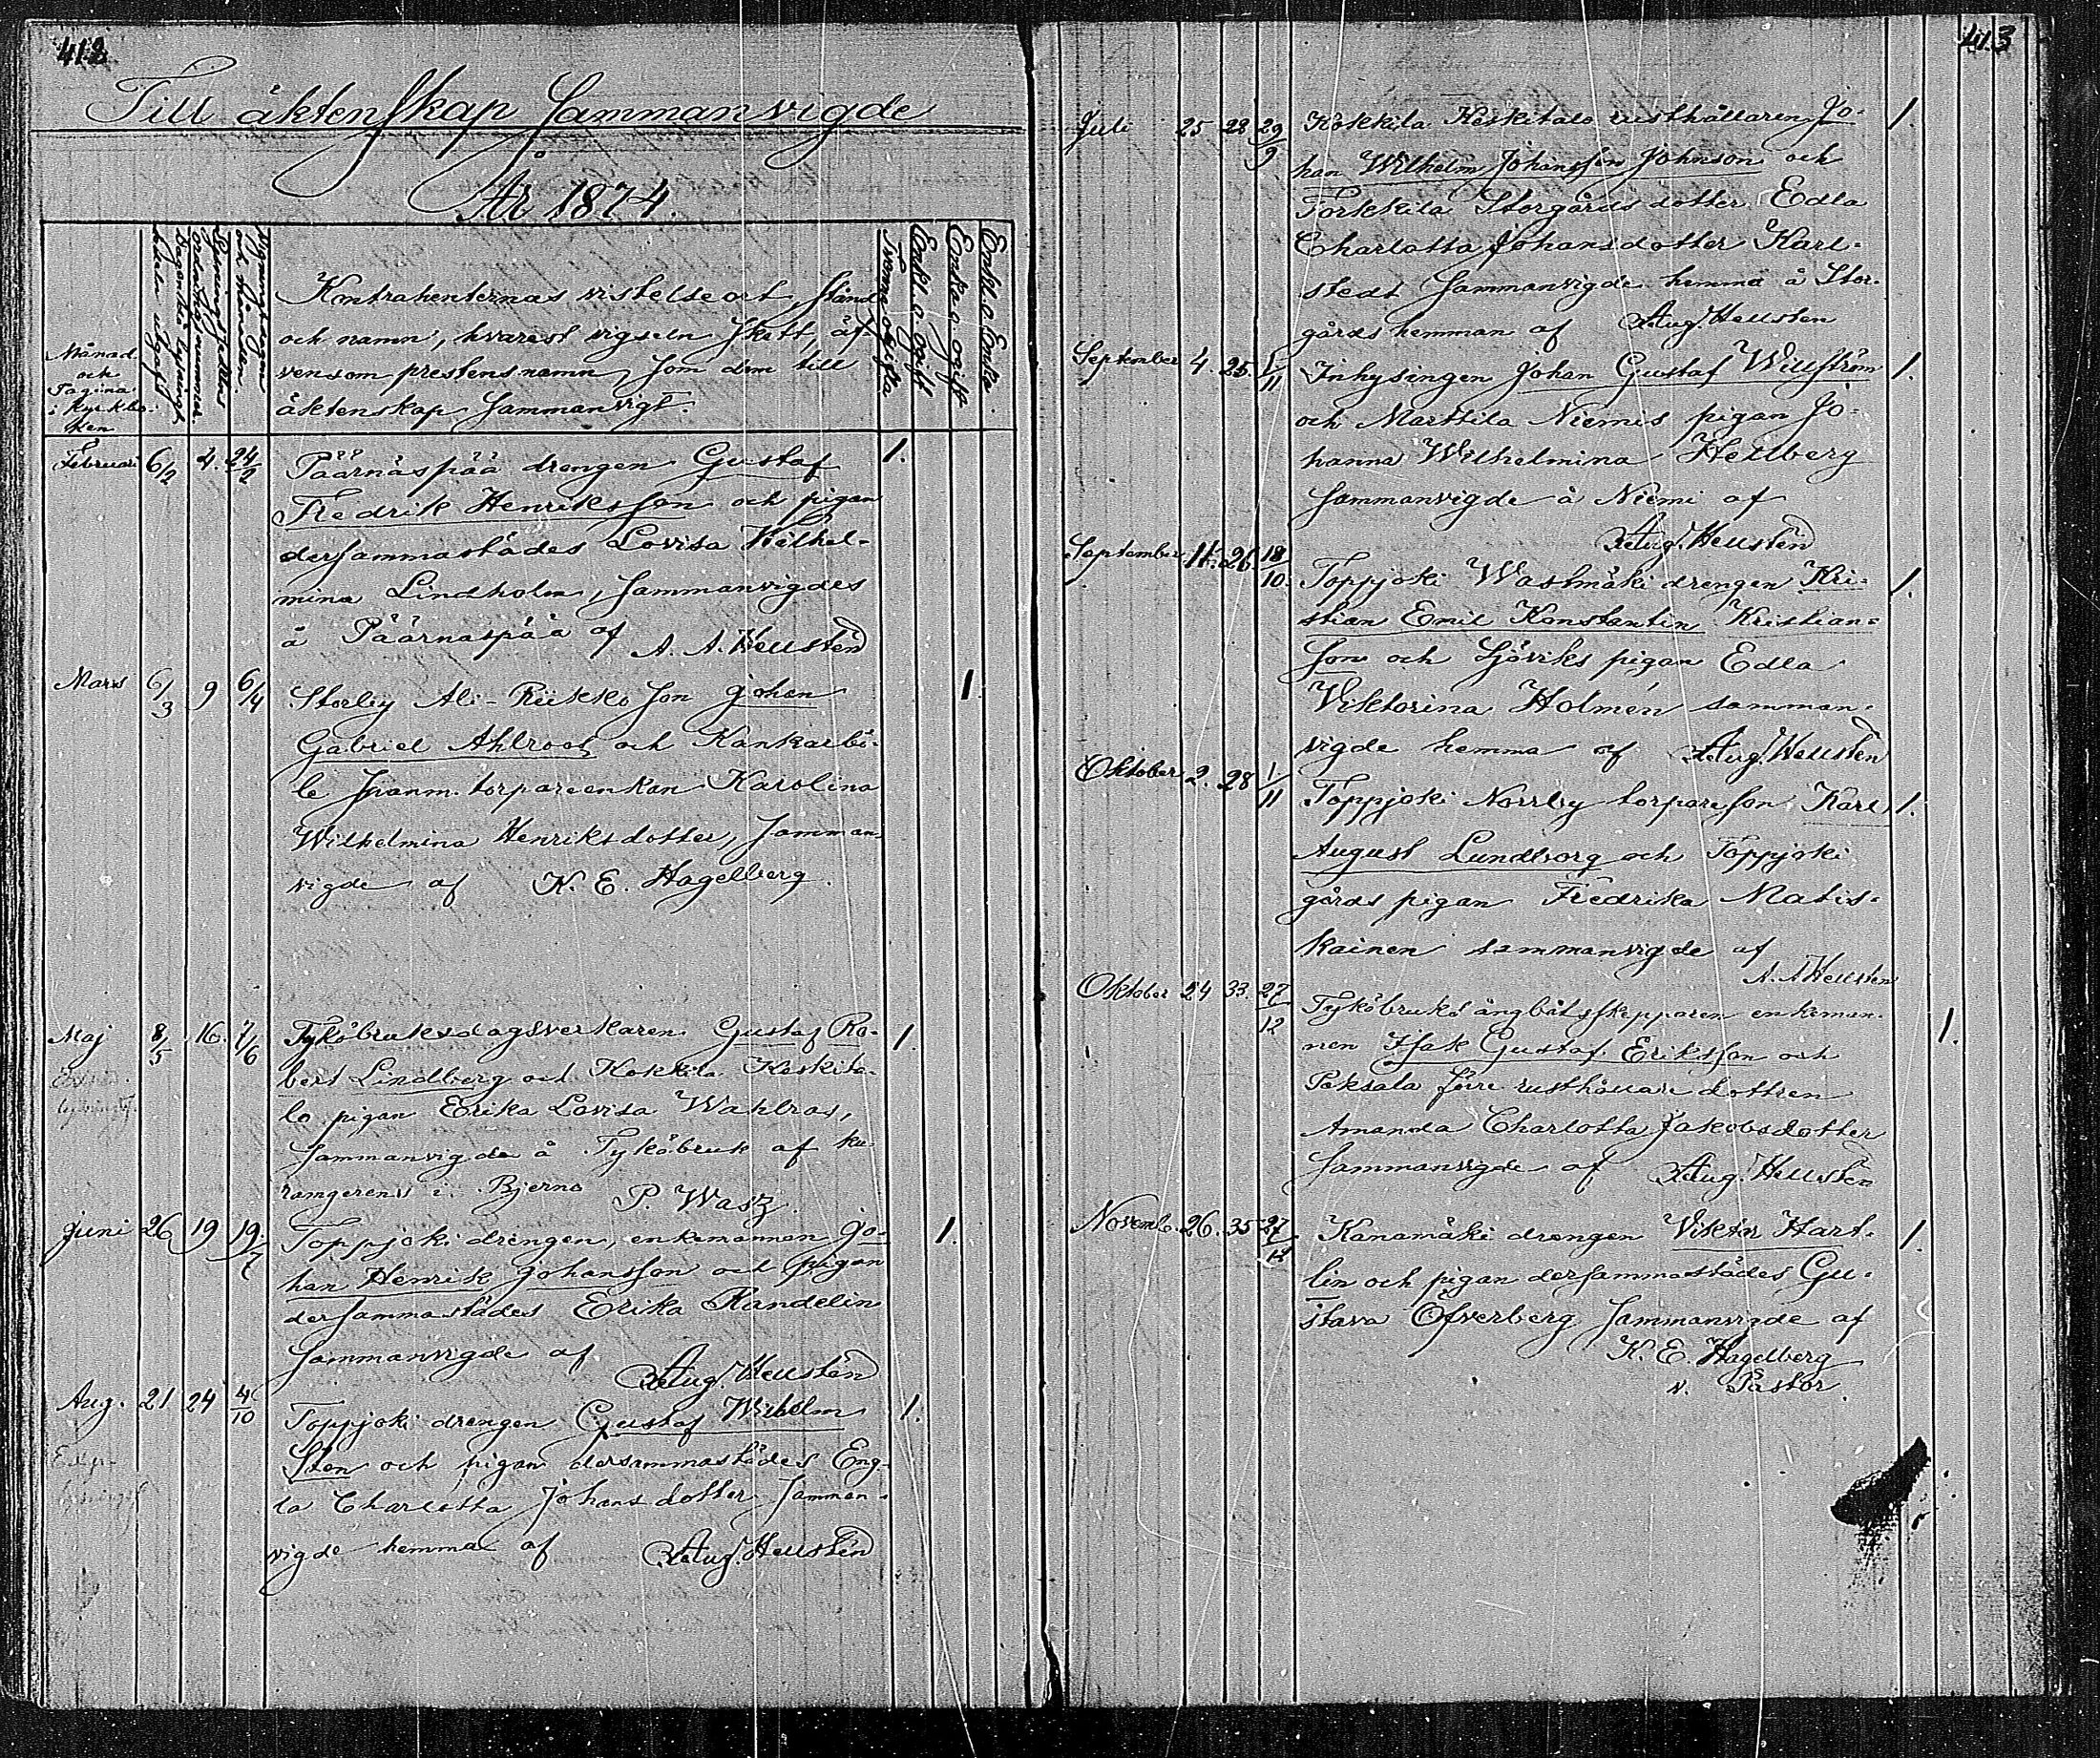 412
Till äktenskap Sammanvigde
År 1874.
Månad
och
Pagina
i Kyrkbo-
ken
Kontrahenternas vistelseort, stånd
och namn, hvarest vigseln skett, äf-
vensom prestens namn, som dem till
äktenskap sammanvigt.
Tvenne ogifta
Enkl. o. ogift
Enka o. ogift
Enkl. o. Enka.
Februari 6/2 4. 24/2 Päärnäspää drengen Gustaf 1.
Fredrik Henriksson och pigan
dersammastädes Lovisa Wilhel-
mina Lindholm, Sammanvigdes
å Päärnäspää af A. A. Heusten
Mars 6/3 9 6/4 Storby Ali-Riikko Son Johan 1.
Gabriel Ahlroos och Kankarbö-
le torpareenkan Karolina
Wilhelmina Henriksdotter, Samman-
vigde af K. E. Hagelberg.
Maj 8/5 16. 7/6 Tyköbruksdagsverkaren Gustaf Ro- 1.
bert Lindberg och Kokkila Keskita-
lo pigan Erika Lovisa Wahlros,
Sammanvigde å Tyköbruk af
i Bjerno P. Wasz.
Juni 26 19 19/7 Toppjoki drengen, enkemannen Jo- 1.
han Henrik Johansson och pigan
dersammastädes Erika Kandelin
Sammanvigde af Aug. Heusten
Aug. 21 24 4/10 Toppjoki drengen Gustaf Wilhelm 1.
Sten och pigan dersammastädes Eng-
la Charlotta Johansdotter Samman-
vigde hemma af Aug. Heusten
413
Juli 25 28 29/9 Kokkila Keskitalo rusthållaren Jo- 1.
han Wilhelm Johansson Johnson och
Torkkila Storgårds dotter Edla
Charlotta Johansdotter Karl-
stedt Sammanvigde hemma å Stor-
gårds hemman af Aug. Heusten
September 4. 25. 1/11 Inhysingen Johan Gustaf Willström 1.
och Marttila Niemis pigan Jo-
hanna Wilhelmina Hellberg
Sammanvigde å Niemi af
Aug. Heusten
September 11. 26. 18/10. Toppjoki Wasbmäki drengen Kri- 1.
stian Emil Konstantin Kristian-
son och Sjöviks pigan Edla
Viktorina Holmén samman-
vigde hemma af Aug. Heusten
Oktober 2. 28 1/11 Toppjoki Norrby torpareson Karl 1.
August Lundborg och Toppjoki
gårds pigan Fredrika Matis-
kainen sammanvigde af
A. A Heusten
Oktober 24 33. 27/12 Tyköbruks ångbåtsskepparen enkeman- 1.
nen Isak Gustaf Eriksson och
Paksala förre rusthållare dottren
Amanda Charlotta Jakobsdotter
Sammanvigde af Aug. Heusten
Novemb. 26. 35 27/12 Kanamäki drengen Viktor Hart- 1.
lin och pigan dersammastädes Gu-
stava Öfverberg Sammanvigde af
K. E. Hagelberg
v. Pastor.